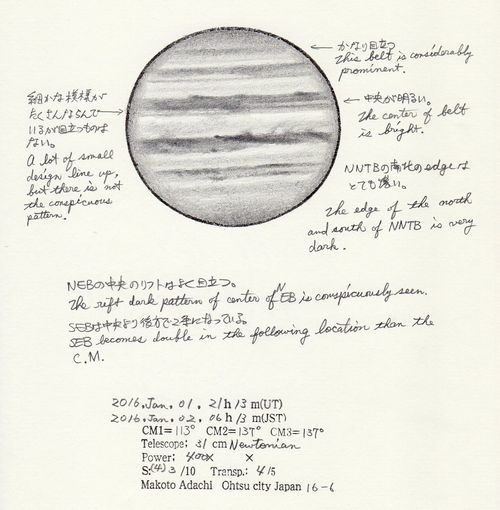 かなり目立つ
This belt is considerably
prominent.
中央が明るい。
The center of belt
is bright.
NNTBの南北のedgeは
とても濃い。
The edge of the north
and south of NNTB is very
dark.
細かな模様が
たくさんならんで
いるが目立つものは
ない。
A lot of small
design line up,
but there is not
the conspicuous
pattern.
NEBの中央のリフトはよく目立つ。
The rift dark pattern of center of NEB is conspicuously seen.
SEBは中央より後方で2条になっている。
SEB becomes double in the following location than the
C.M.
2016.Jan. 01. 21h 13 m(UT)
2016.Jan. 02. 06h 13 m(JST)
CM1= 113° CM2= 137° CM3= 137°
Telescope: 31 cm Newtonian
Power: 400x x
S:(4)3 /10 Transp.: 4/5
Makoto Adachi Ohtsu city Japan 16-6